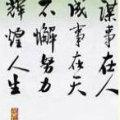 谋事在人
成事在天
不懈努力
辉煌人生